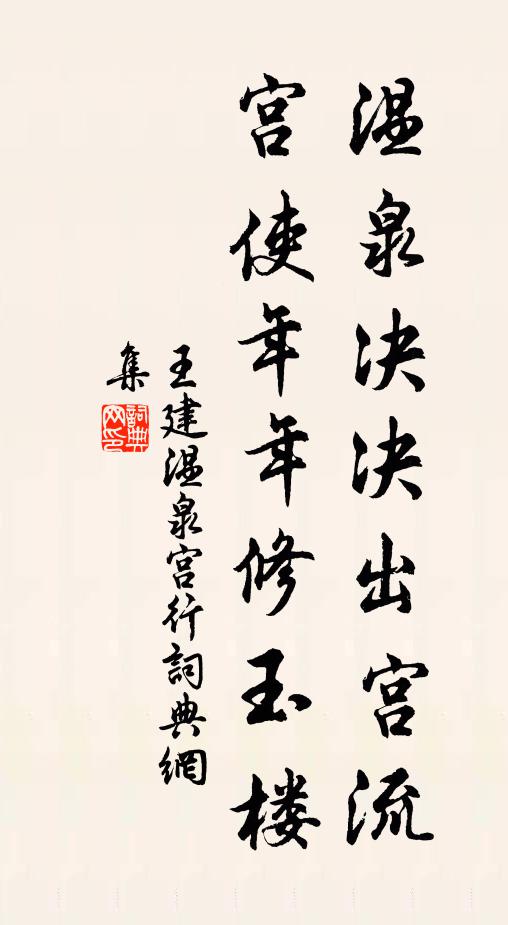 温泉决决出宫流
宫使年年修玉楼
王建温泉宫行詞典網
集
詞典网印